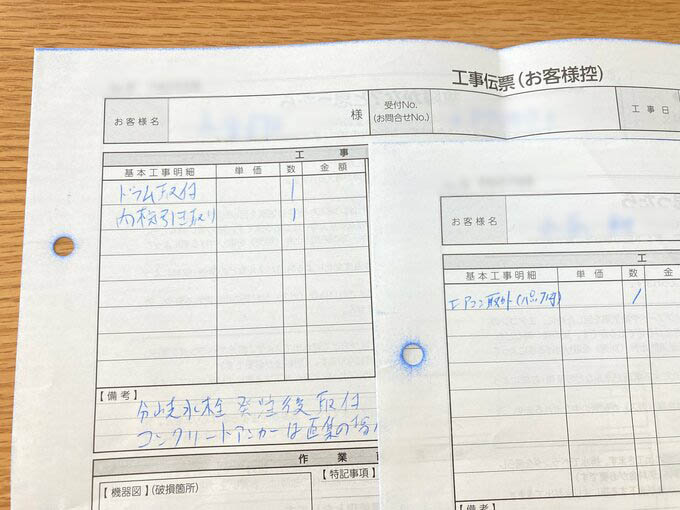 工事伝票(お客様控)
お客様名
様
受付No.
(お問合せNo.)
工事日
工事
基本工事明細 単価 数 金額
ドラム取付 1
内校引き取り 1
【備考】
分岐水栓 発注後 取付
コンクリートアンカーは直集の場
作業
【機器図】(破損箇所)
【特記事項】
お客様名
工
基本工事明細 単価 数 金
エアコン取外(パイプ付) 1
【備考】